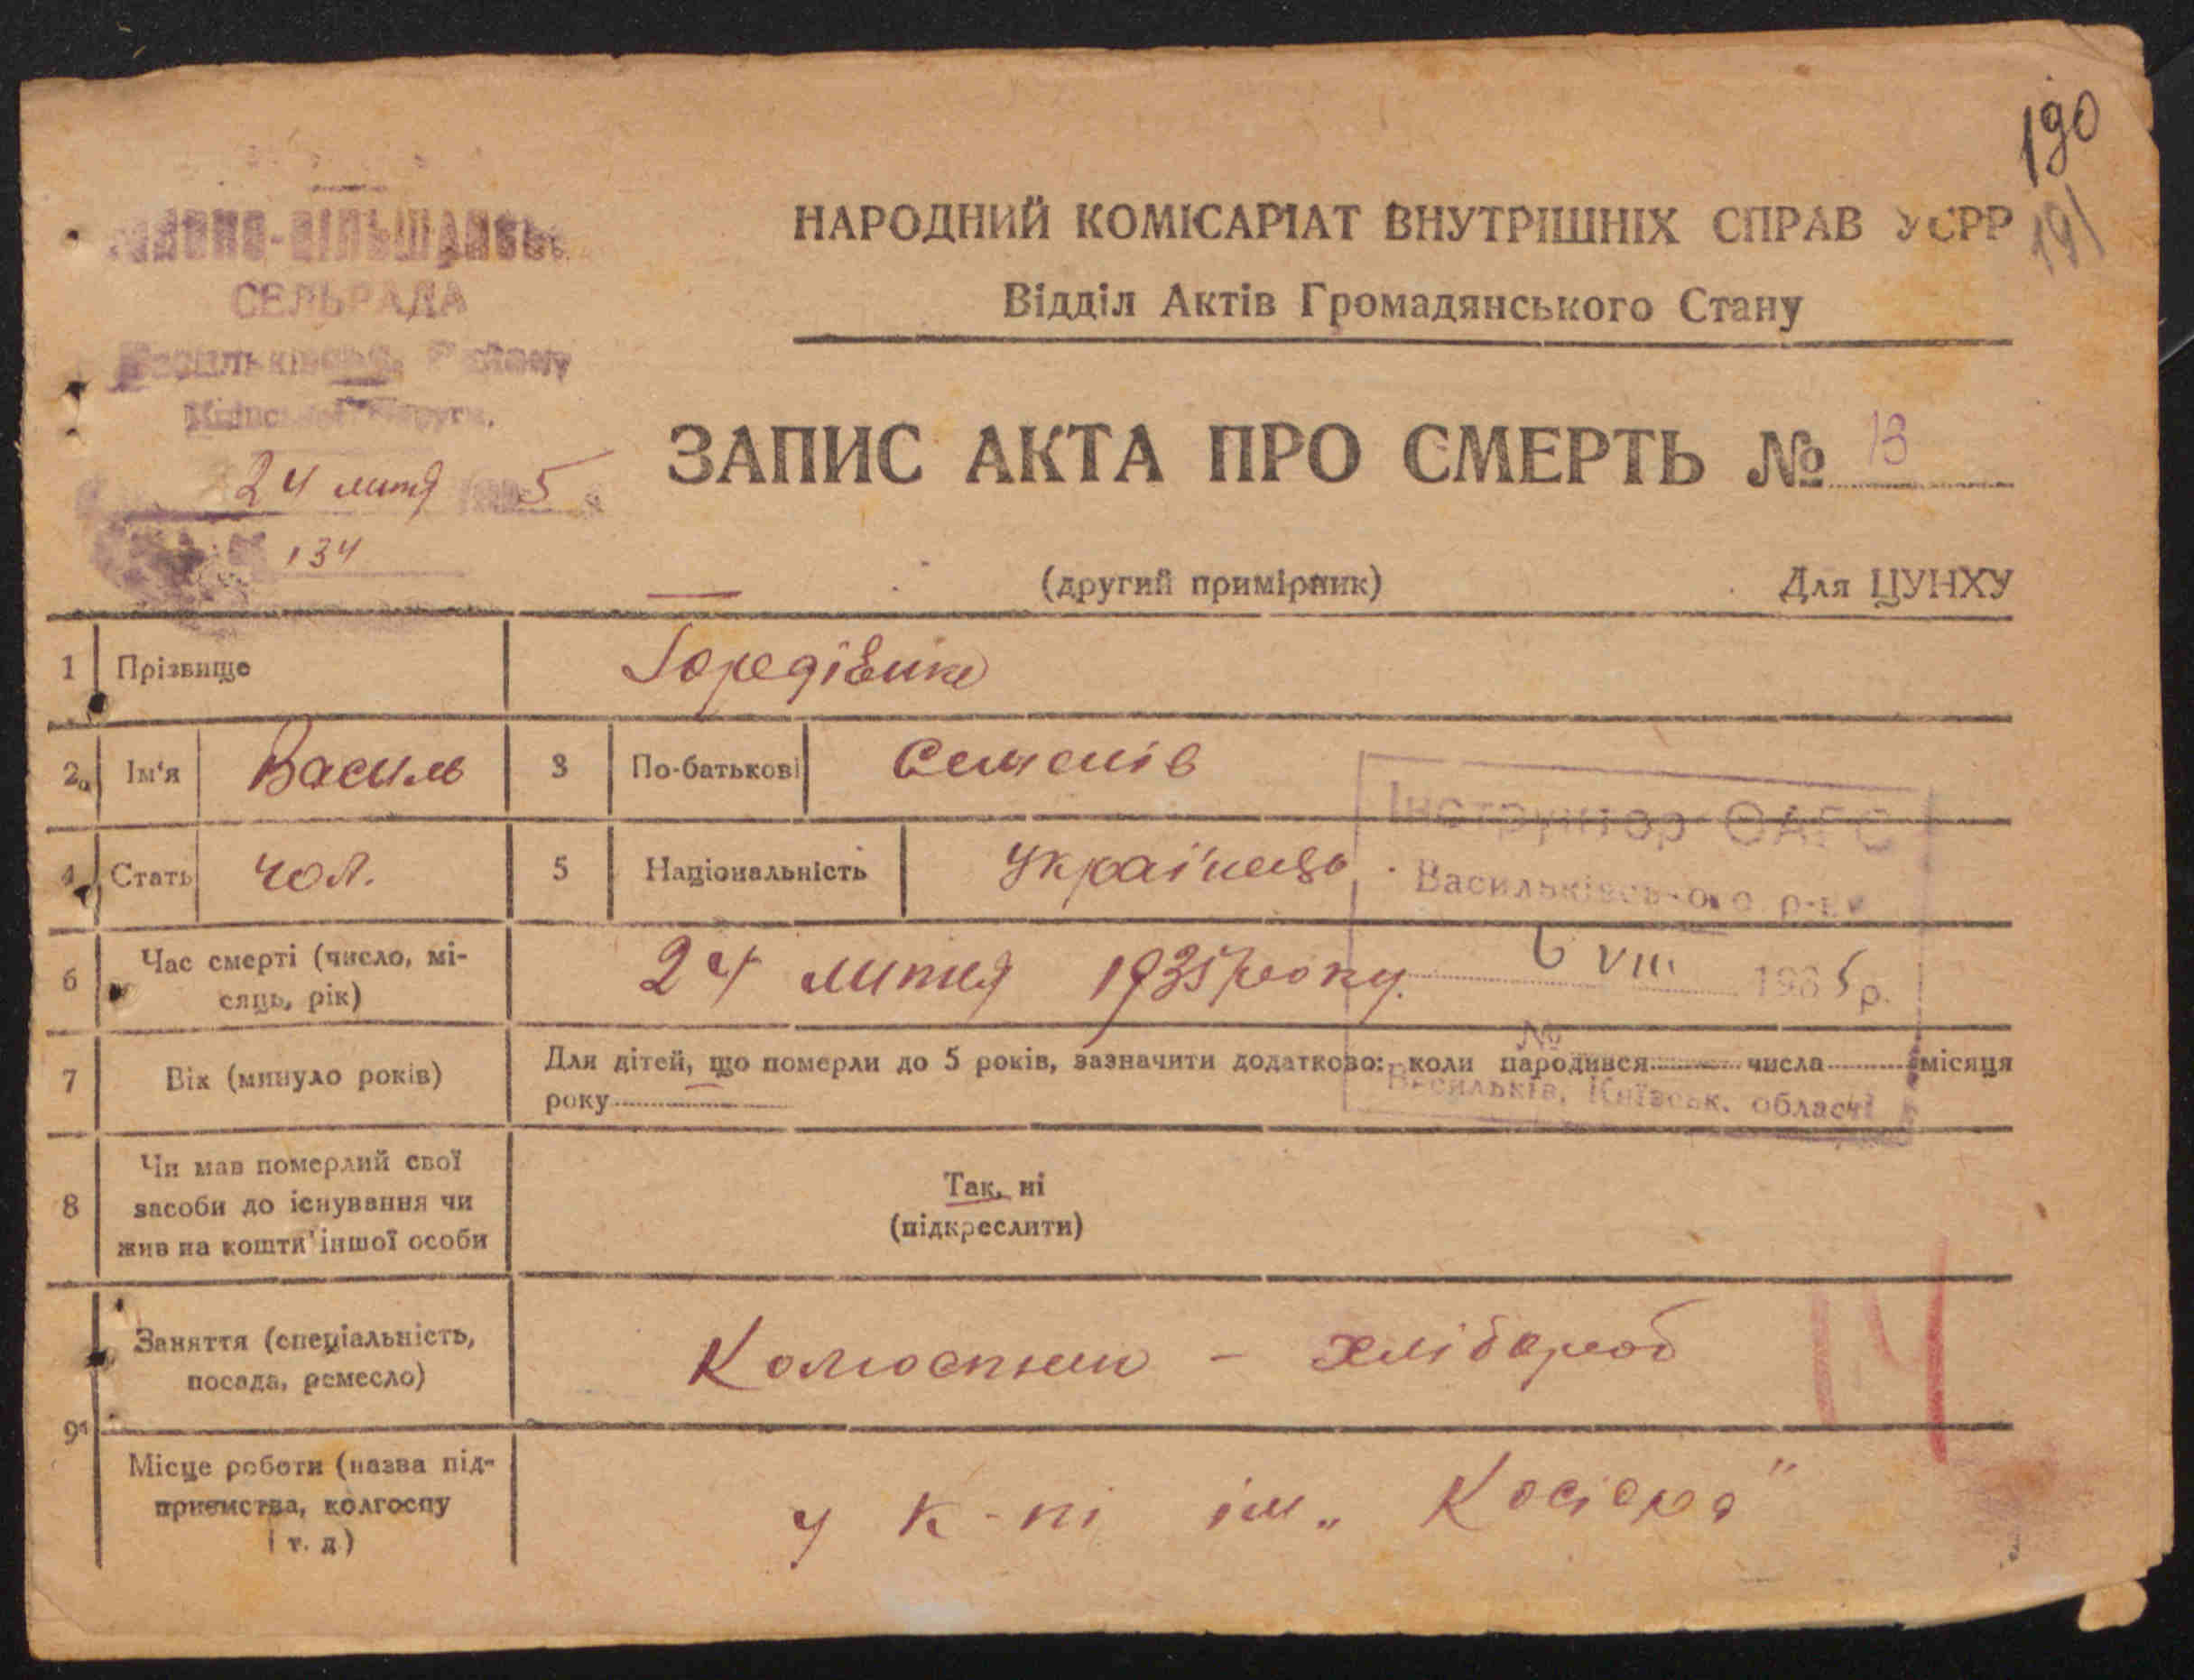 190
191
СЕЛЬРАДА
НАРОДНИЙ КОМІСАРІАТ ВНУТРІШНІХ СПРАВ УСРР
Відділ Актів Громадянського Стану
ЗАПИС АКТА ПРО СМЕРТЬ № 13
24 липня 5
134
(другий примірник) Для ЦУНХУ
1 Прізвище
2 Ім'я Василь 3 По-батькові Семенів
Інструктор ОАГС
4 Стать чол. 5 Національність Українець
Васильківського р-ну
6 Час смерті (число, мі-
сяць, рік) 24 липня 1935 року.
6 VIII 1935 р.
№
7 Вік (минуло років) Для дітей, що померли до 5 років, зазначити додатково: коли народився числа місяця
року
Васильків, Київськ. області
8 Чи мав померлий свої
засоби до існування чи
жив на кошти іншої особи
Так, ні
(підкреслити)
9 Заняття (спеціальність,
посада, ремесло) хлібороб
Місце роботи (назва під-
приємства, колгоспу
і т. д.) у к-пі ім „Косіора"